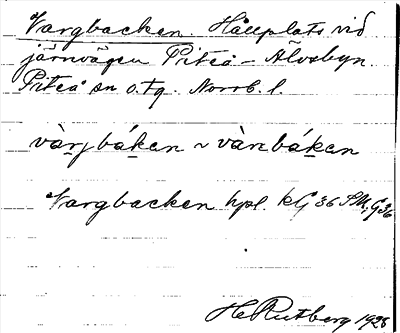 Vargbacken. Hållplats vid
järnvägen Piteå - Älvsbyn
Piteå sn o. tg. Norrb. l.
vàrjbáken ~ vàrıbáken
Vargbacken hpl. kG 36 SM; G36
H Rutberg 1928